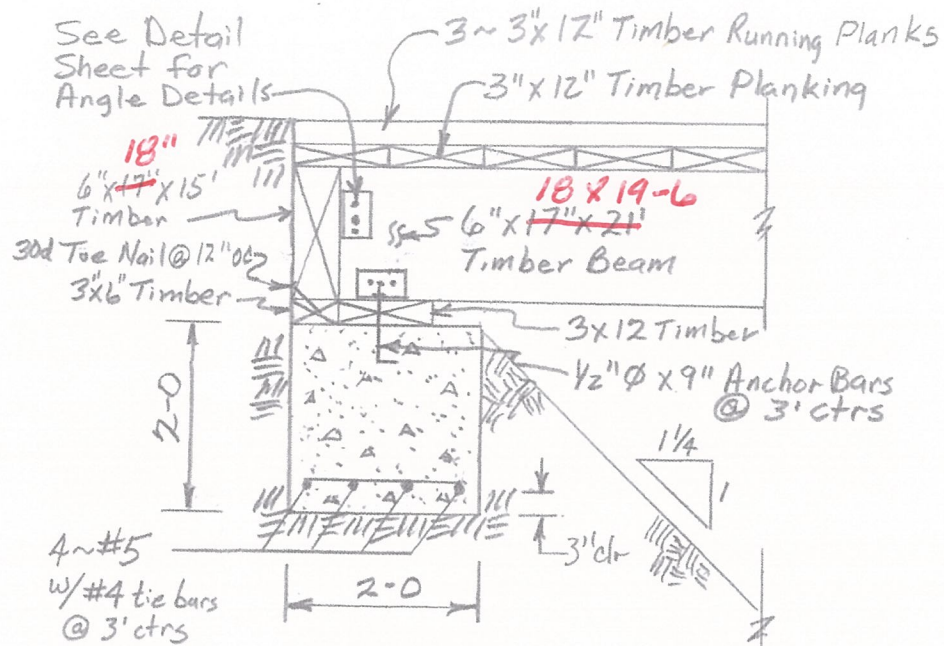 See Detail
Sheet for
Angle Details
3~3"x12" Timber Running Planks
3"x12" Timber Planking
18"
6"x17"x15'
Timber
18 x 19-6
5 6"x17"x21'
Timber Beam
30d Toe Nail @ 12"oc
3"x6" Timber
3x12 Timber
1/2"Ø x 9" Anchor Bars
@ 3' ctrs
2-0
1 1/4
1
3" clr
4~#5
w/#4 tie bars
@ 3' ctrs
2-0